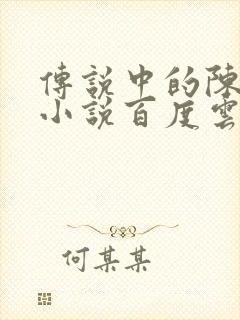 傳說中的陳
小說百度雲
何某某